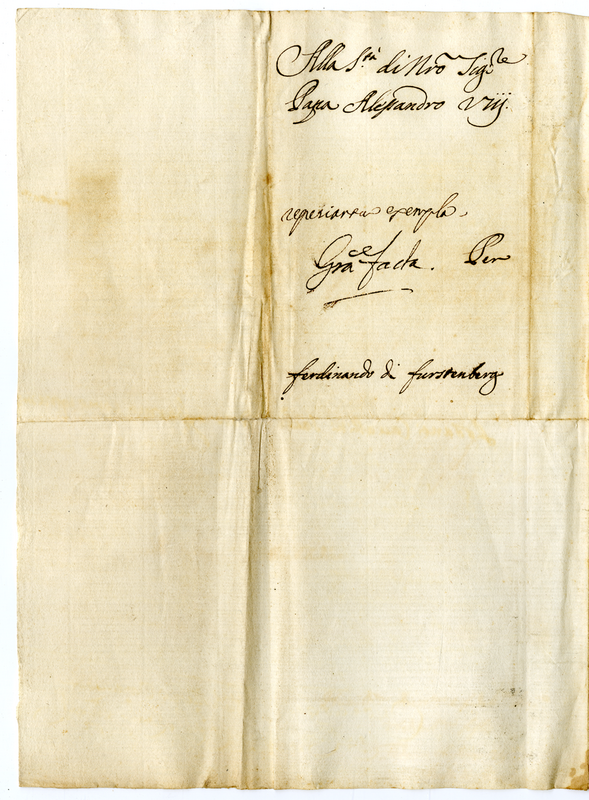 Alla S.tà di Nro Sig.re
Papa Alessandro VIIj.
exempla
Gra.ce facta. Per
ferdinando di furstenberg